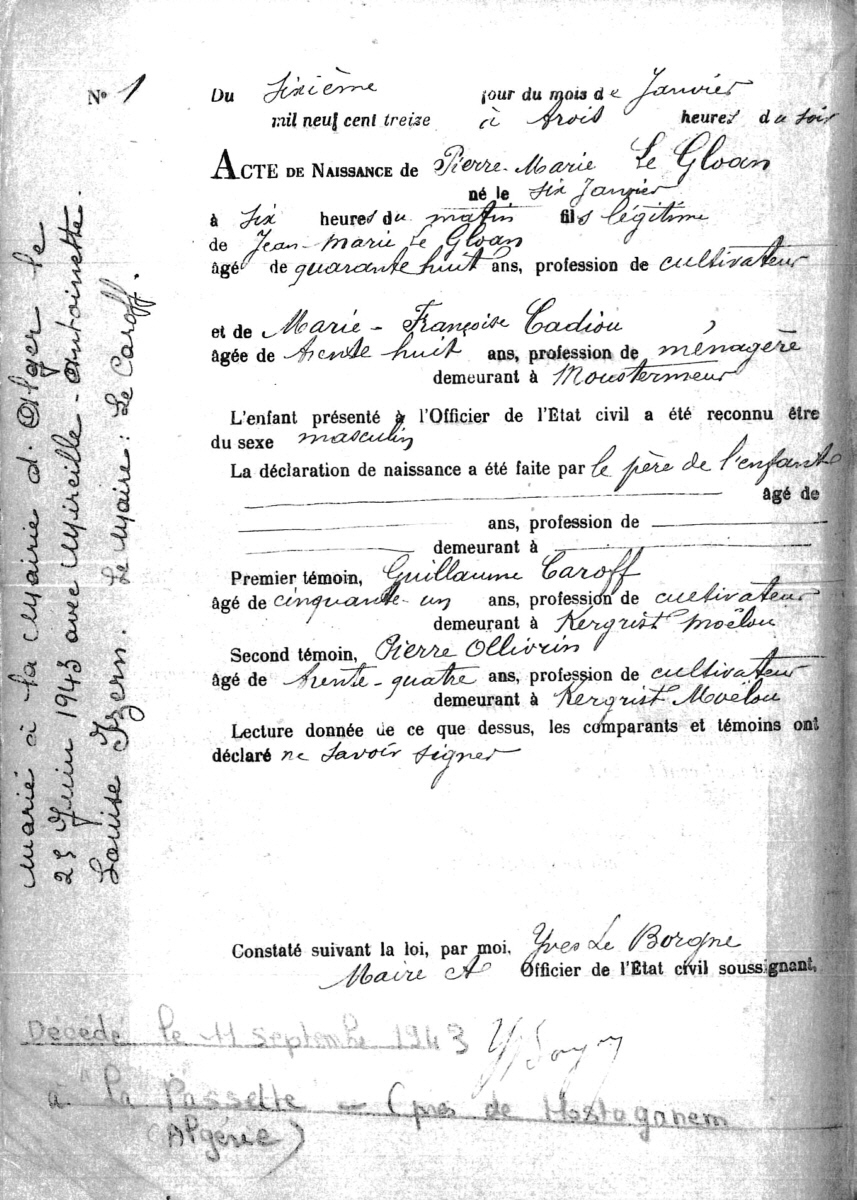 Nº 1
Du sixième jour du mois de Janvier
mil neuf cent treize à trois heures du soir
ACTE DE NAISSANCE de Pierre-Marie Le Gloan
né le six Janvier
à six heures du matin fils légitime
de Jean-Marie Le Gloan
âgé de quarante huit ans, profession de cultivateur
et de Marie-Françoise Cadiou
âgée de trente huit ans, profession de ménagère
demeurant à Moustermeur
L'enfant présenté à l'Officier de l'Etat civil a été reconnu être
du sexe masculin
La déclaration de naissance a été faite par le père de l'enfant
âgé de
ans, profession de
demeurant à
Premier témoin, Guillaume Caroff
âgé de cinquante-un ans, profession de cultivateur
demeurant à Kergrist Moëlou
Second témoin, Pierre Ollivrin
âgé de trente-quatre ans, profession de cultivateur
demeurant à Kergrist Moëlou
Lecture donnée de ce que dessus, les comparants et témoins ont
déclaré ne savoir signer
Constaté suivant la loi, par moi, Yves Le Borgne
Maire Officier de l'Etat civil soussignant,
Décédé le 11 septembre 1943
a "La Passette - (près de Mostaganem
(Algérie)
Marié à la Mairie d'Alger le
25 Juin 1943 avec Mireille-Antoinette-
Louise Yzern. Le Maire : Le Caroff.